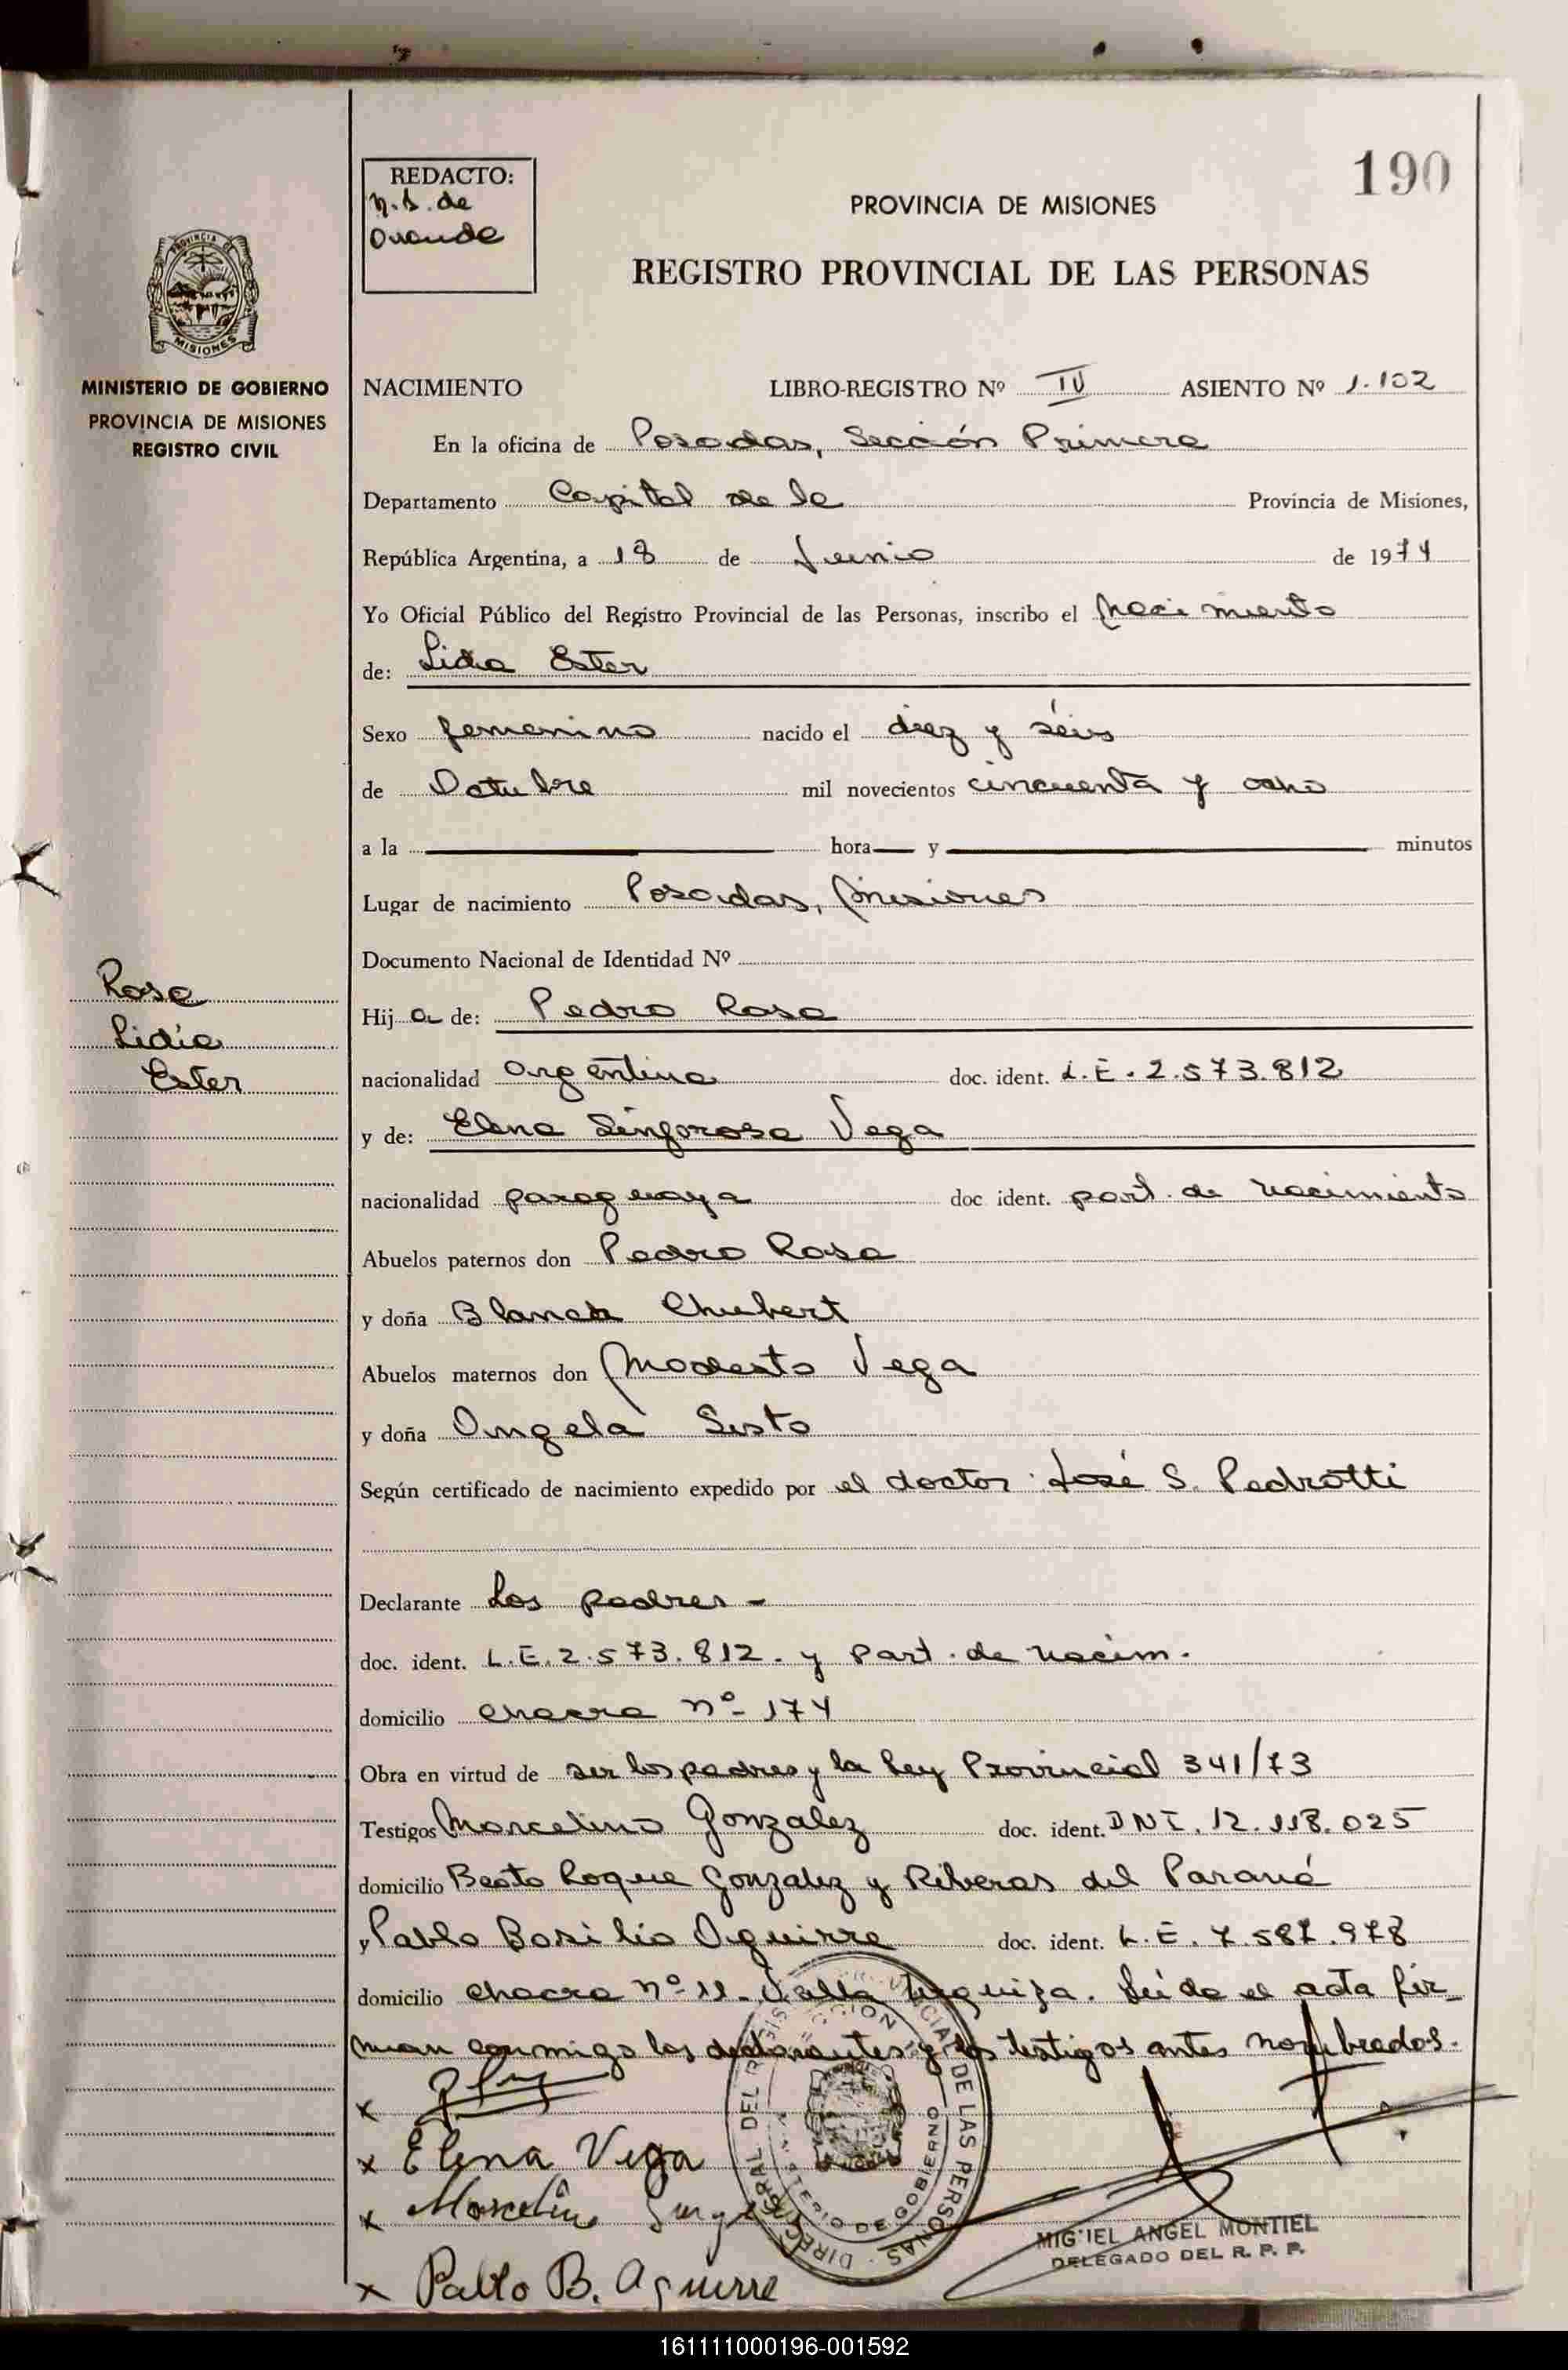 190
REDACTO:
PROVINCIA DE MISIONES
REGISTRO PROVINCIAL DE LAS PERSONAS
PROVINCIA DE
MISIONES
MINISTERIO DE GOBIERNO
PROVINCIA DE MISIONES
REGISTRO CIVIL
NACIMIENTO LIBRO-REGISTRO Nº IV ASIENTO Nº 1.102
En la oficina de Posadas, Sección Primera
Departamento Capital de la Provincia de Misiones,
República Argentina, a 18 de Junio de 1974
Yo Oficial Público del Registro Provincial de las Personas, inscribo el nacimiento
de: Lidia Ester
Sexo femenino nacido el diez y séis
de Octubre mil novecientos cincuenta y ocho
a la hora y minutos
Lugar de nacimiento Posadas, Misiones
Documento Nacional de Identidad Nº
Rosa
Lidia
Ester
Hij a de: Pedro Rosa
nacionalidad Argentina doc. ident. L.E. 2.573.812
y de: Elena Vega
nacionalidad paraguaya doc ident. part. de nacimiento
Abuelos paternos don Pedro Rosa
y doña Blanca Chubert
Abuelos maternos don Modesto Vega
y doña Angela Sisto
Según certificado de nacimiento expedido por el doctor José S. Pedrotti
Declarante Los padres -
doc. ident. L.E. 2.573.812. y Part. de nacim.
domicilio chacra nº 174
Obra en virtud de ser los padres y la Ley Provincial 341/73
Testigos Marcelino Gonzalez doc. ident. DNI. 12.118.025
domicilio Beato Roque Gonzalez y Riberas del Paraná
y Pablo Basilio Aguirre doc. ident. L.E. 7.587.978
domicilio chacra nº 11. Villa Urquiza. Leída el acta fir-
man conmigo los declarantes y los testigos antes nombrados.
x
x Elena Vega
x Marcelino
x Pablo B. Aguirre
MIGUEL ANGEL MONTIEL
DELEGADO DEL R. P. P.
161111000196-001592